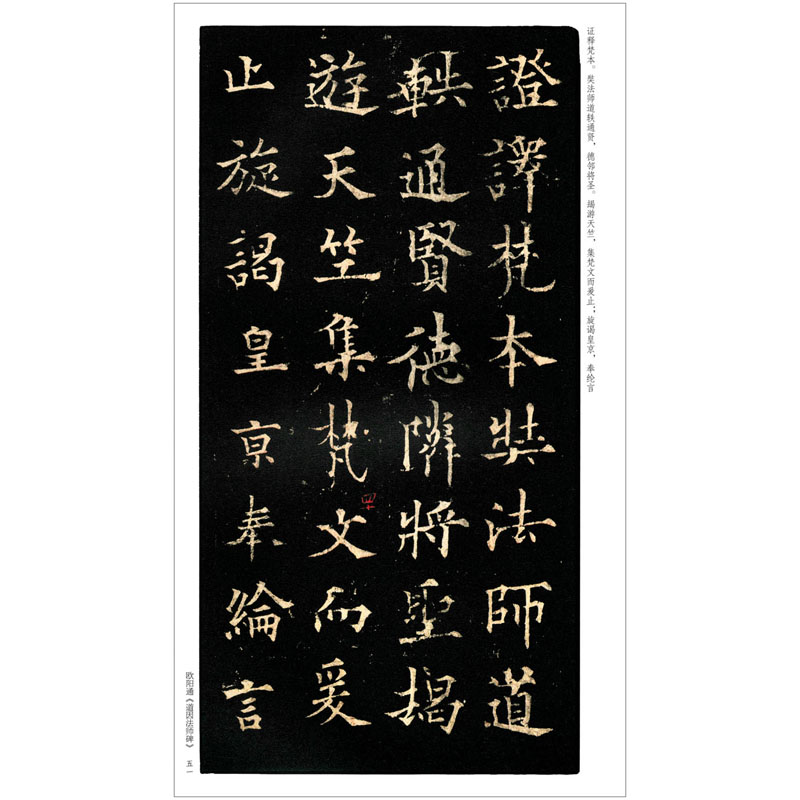 证释梵本。奘法师道轶通贤，德邻将圣。朅游天竺，集梵文而爰止；旋谒皇京，奉纶言
證譯梵本奘法師道
軼通賢德隣將聖朅
遊天竺集梵文而爰
止旋謁皇京奉綸言
欧阳通《道因法师碑》 五一